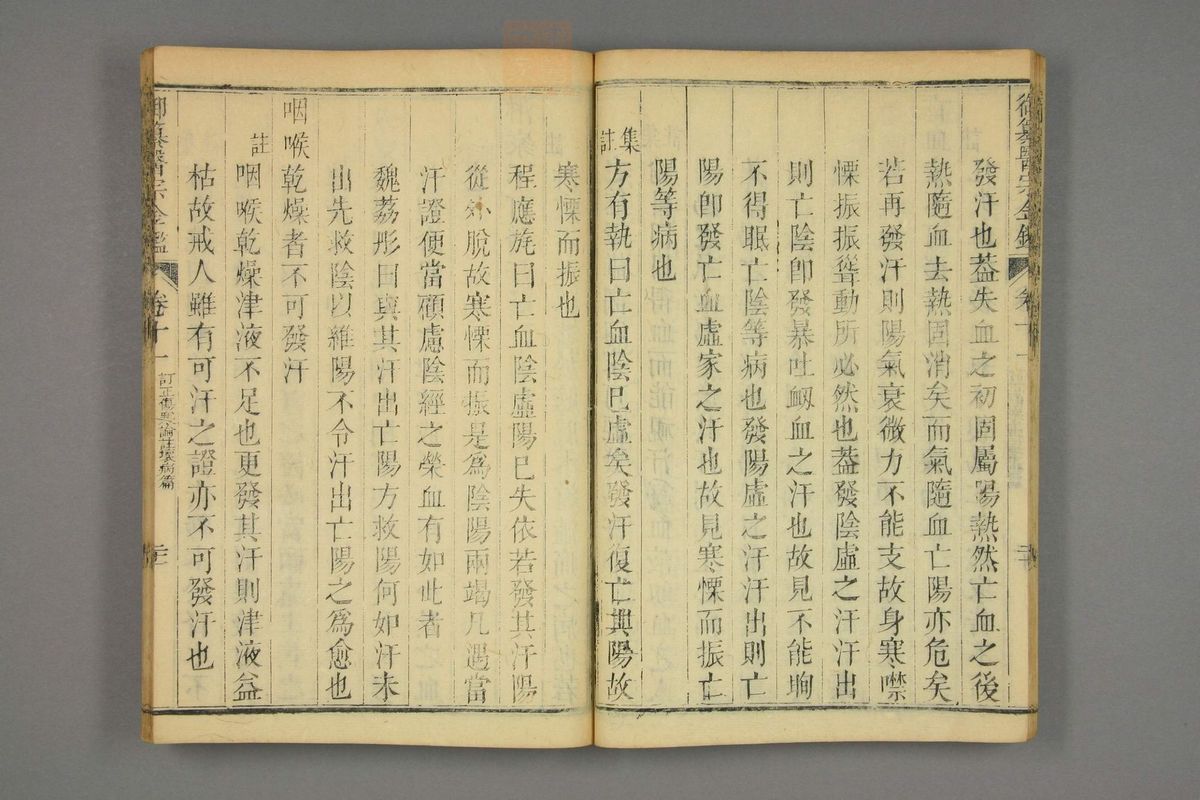 發汗也葢失血之初固屬陽熱然亡血之後
熱隨血去熱固消矣而氣隨血亡陽亦危矣
若再發汗則陽氣衰微力不能支故身寒噤
慄振振聳動所必然也葢發陰虛之汗汗出
則亡陰卽發暴吐衂血之汗也故見不能眴
不得眠亡陰等病也發陽虛之汗汗出則亡
陽卽發亡血虛家之汗也故見寒慄而振亡
陽等病也
集註
方有執曰亡血陰已虛矣發汗復亡其陽故
寒慄而振也
程應旄曰亡血陰虛陽已失依若發其汗陽
從外脫故寒慄而振是爲陰陽兩竭凡遇當
汗證便當顧慮陰經之榮血有如此者
魏荔彤曰與其汗出亡陽方救陽何如汗未
出先救陰以維陽不令汗出亡陽之爲愈也
咽喉乾燥者不可發汗
註
咽喉乾燥津液不足也更發其汗則津液益
枯故戒人雖有可汗之證亦不可發汗也
御纂醫宗金鑑
卷十一
訂正傷寒論註壞病篇